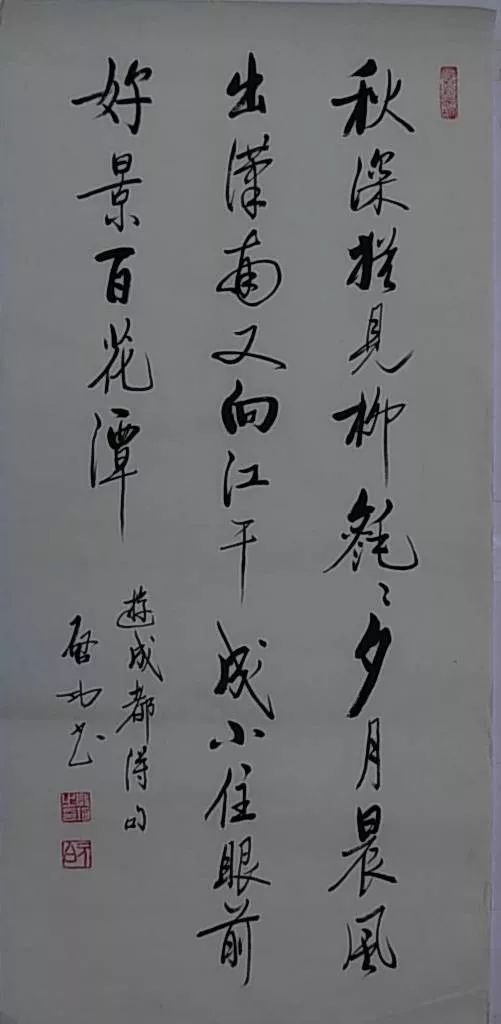 秋深猶見柳毿〻夕月晨風
出漢南又向江干成小住眼前
好景百花潭
遊成都得句
啓功书